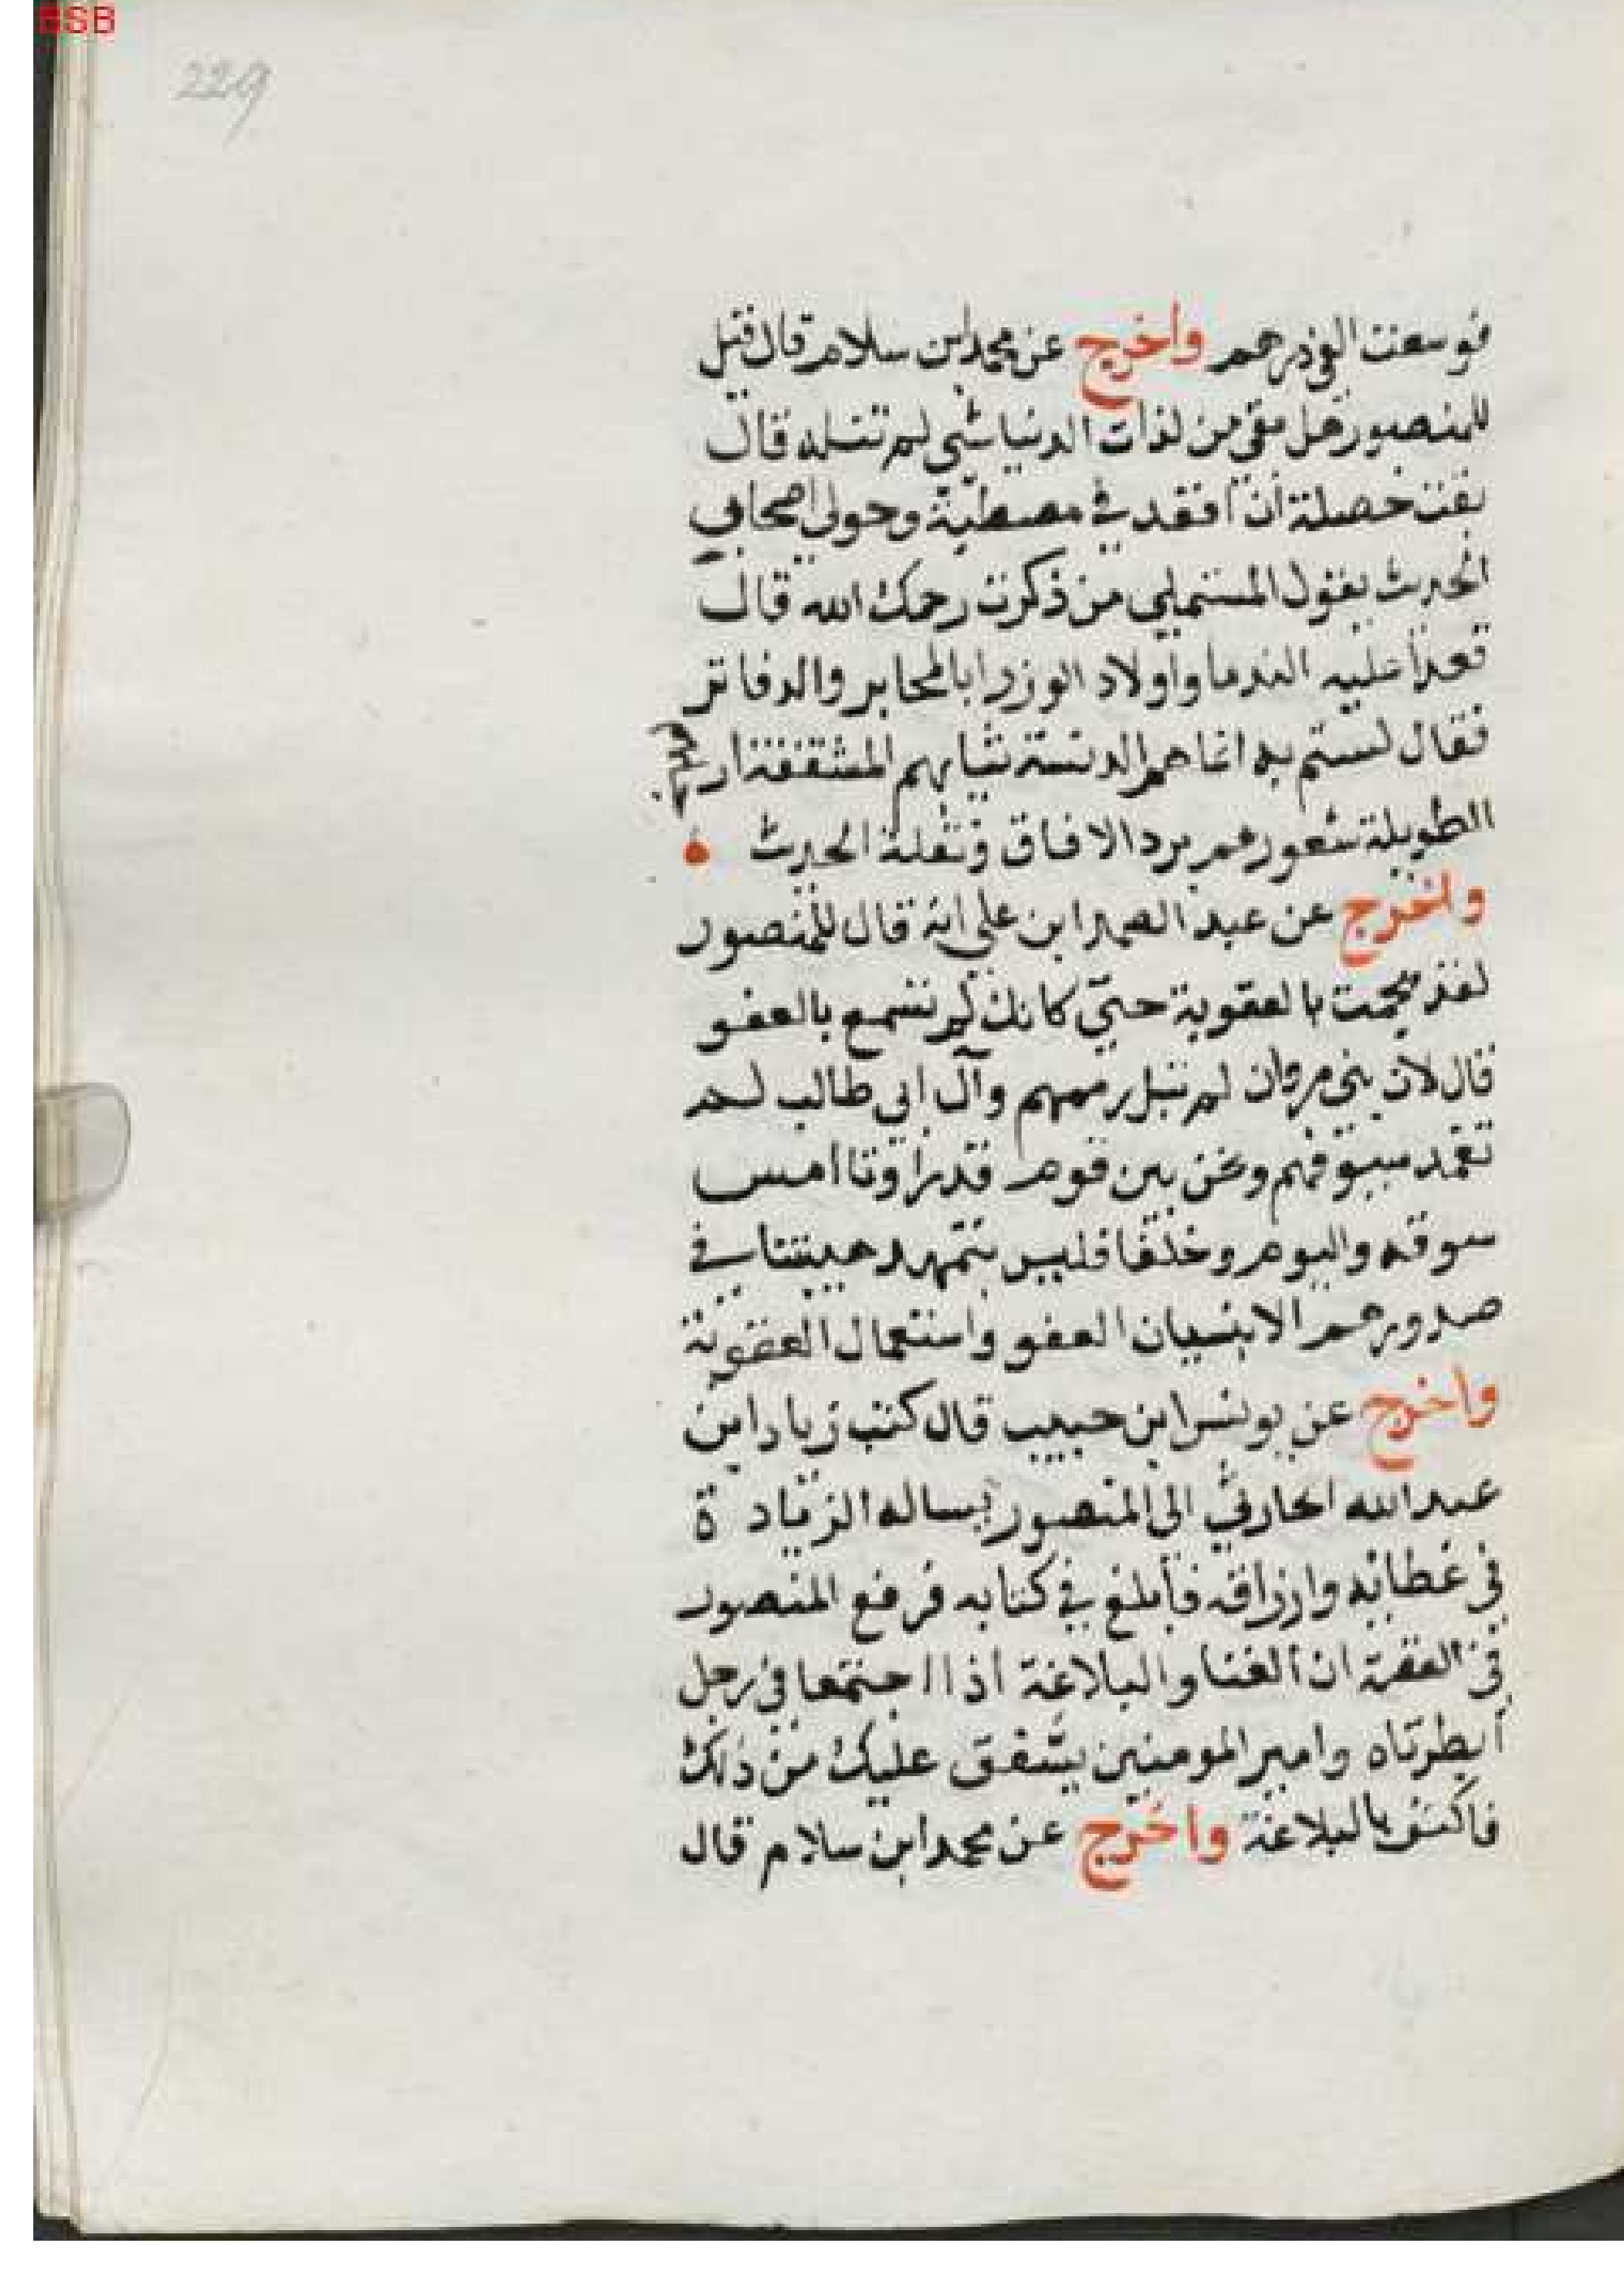 BSB
229
فوسعت الفي درهم واخرج عن محمد ابن سلام قال قيل
للمنصور هل بقي من لذات الدنيا شي لم تنله قال
بقيت خصلة ان اقعد في مصطبة وحولي اصحاب
الحديث يقول المستملي من ذكرت رحمك الله قال
فغدا عليه الندما واولاد الوزرا بالمحابر والدفاتر
فقال لستم بهم انما هم الدنسة ثيابهم المشققة ارجلهم
الطويلة شعورهم برد الافاق ونقلة الحديث
واخرج عن عبد الصمد ابن علي انه قال للمنصور
لقد هجمت بالعقوبة حتي كانك لم تسمع بالعفو
قال لان بني مروان لم تبل رممهم وآل ابي طالب لم
تغمد سيوفهم ونحن بين قوم قد راونا امس
سوقه واليوم وخلفا فليس تتمهد هيبتنا في
صدورهم الا بنسيان العفو واستعمال العقوبة
واخرج عن يونس ابن حبيب قال كتب زياد ابن
عبد الله الحارثي الى المنصور يساله الزيادة
في عطائه وارزاقه فأبلغ في كتابه فرفع المنصور
في القصة ان الغنا والبلاغة اذا اجتمعا في رجل
أبطرتاه وامير المومنين يشفق عليك من ذلك
فاكتف بالبلاغة واخرج عن محمد ابن سلام قال